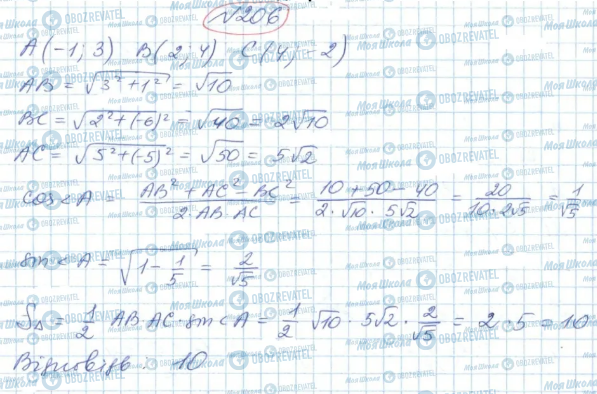 √206
A(-1; 3) B(2; 4) C(4; -2)
AB = √(3² + 1²) = √10
BC = √(2² + (-6)²) = √40 = 2√10
AC = √(5² + (-5)²) = √50 = 5√2
cos<A = (AB² + AC² - BC²)/(2·AB·AC) = (10 + 50 - 40)/(2·√10·5√2) = 20/(10·2√5) = 1/√5
sin<A = √(1 - 1/5) = 2/√5
S△ = 1/2 AB·AC·sin<A = 1/2 √10·5√2·2/√5 = 2·5 = 10
Відповідь: 10
Моя Школа OBOZREVATEL